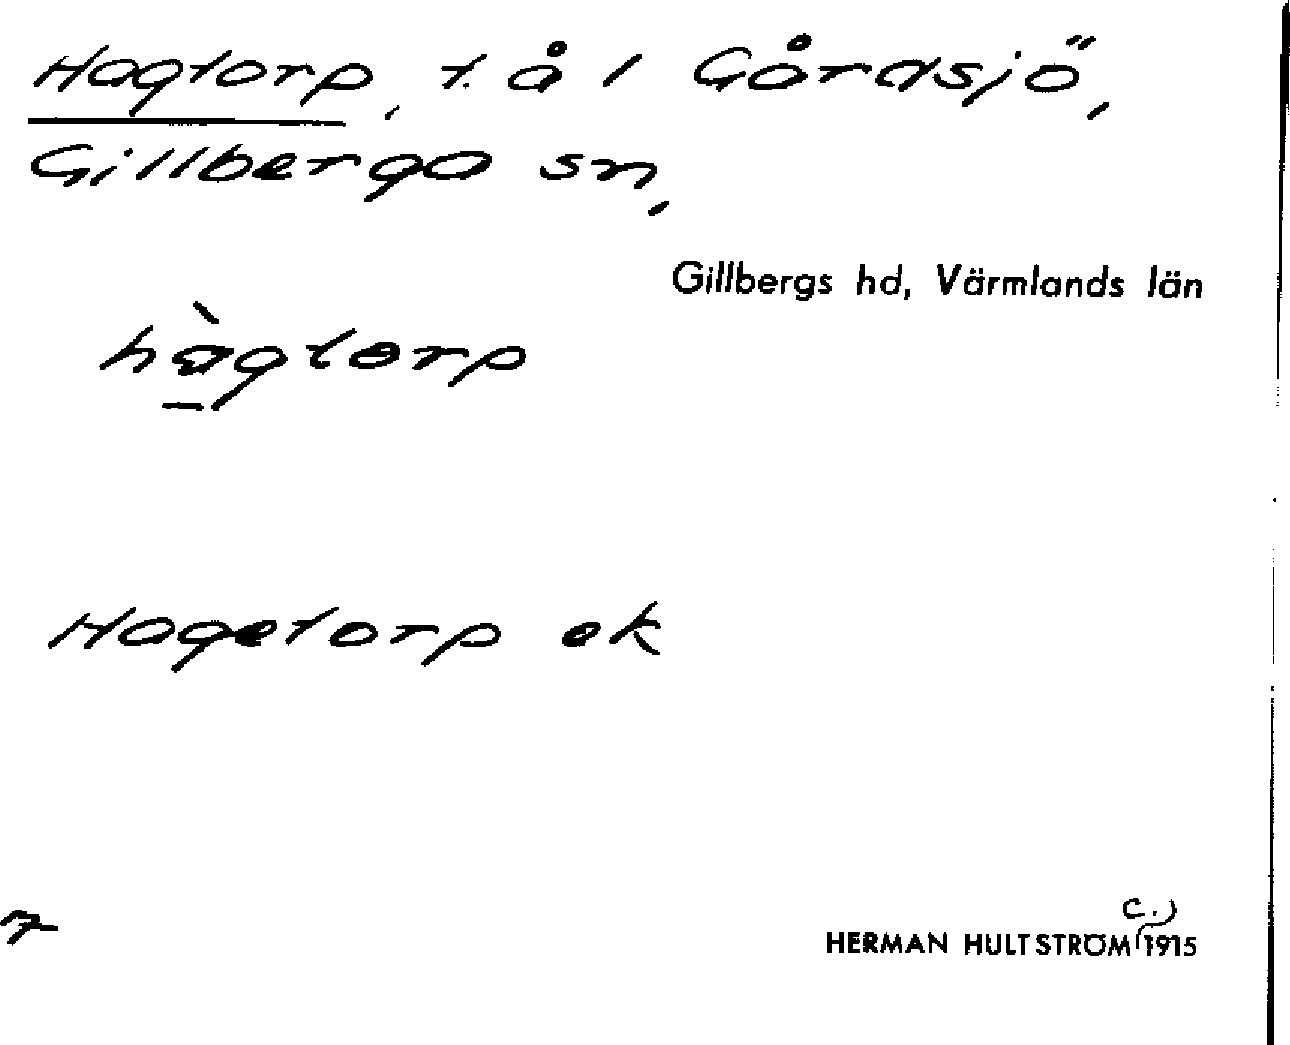 Hagtorp, t. å / Gårdsjö,
Gillberga sn,
Gillbergs hd, Värmlands län
hàgtorp
Hagetorp ek
c.)
HERMAN HULTSTRÖM 1915